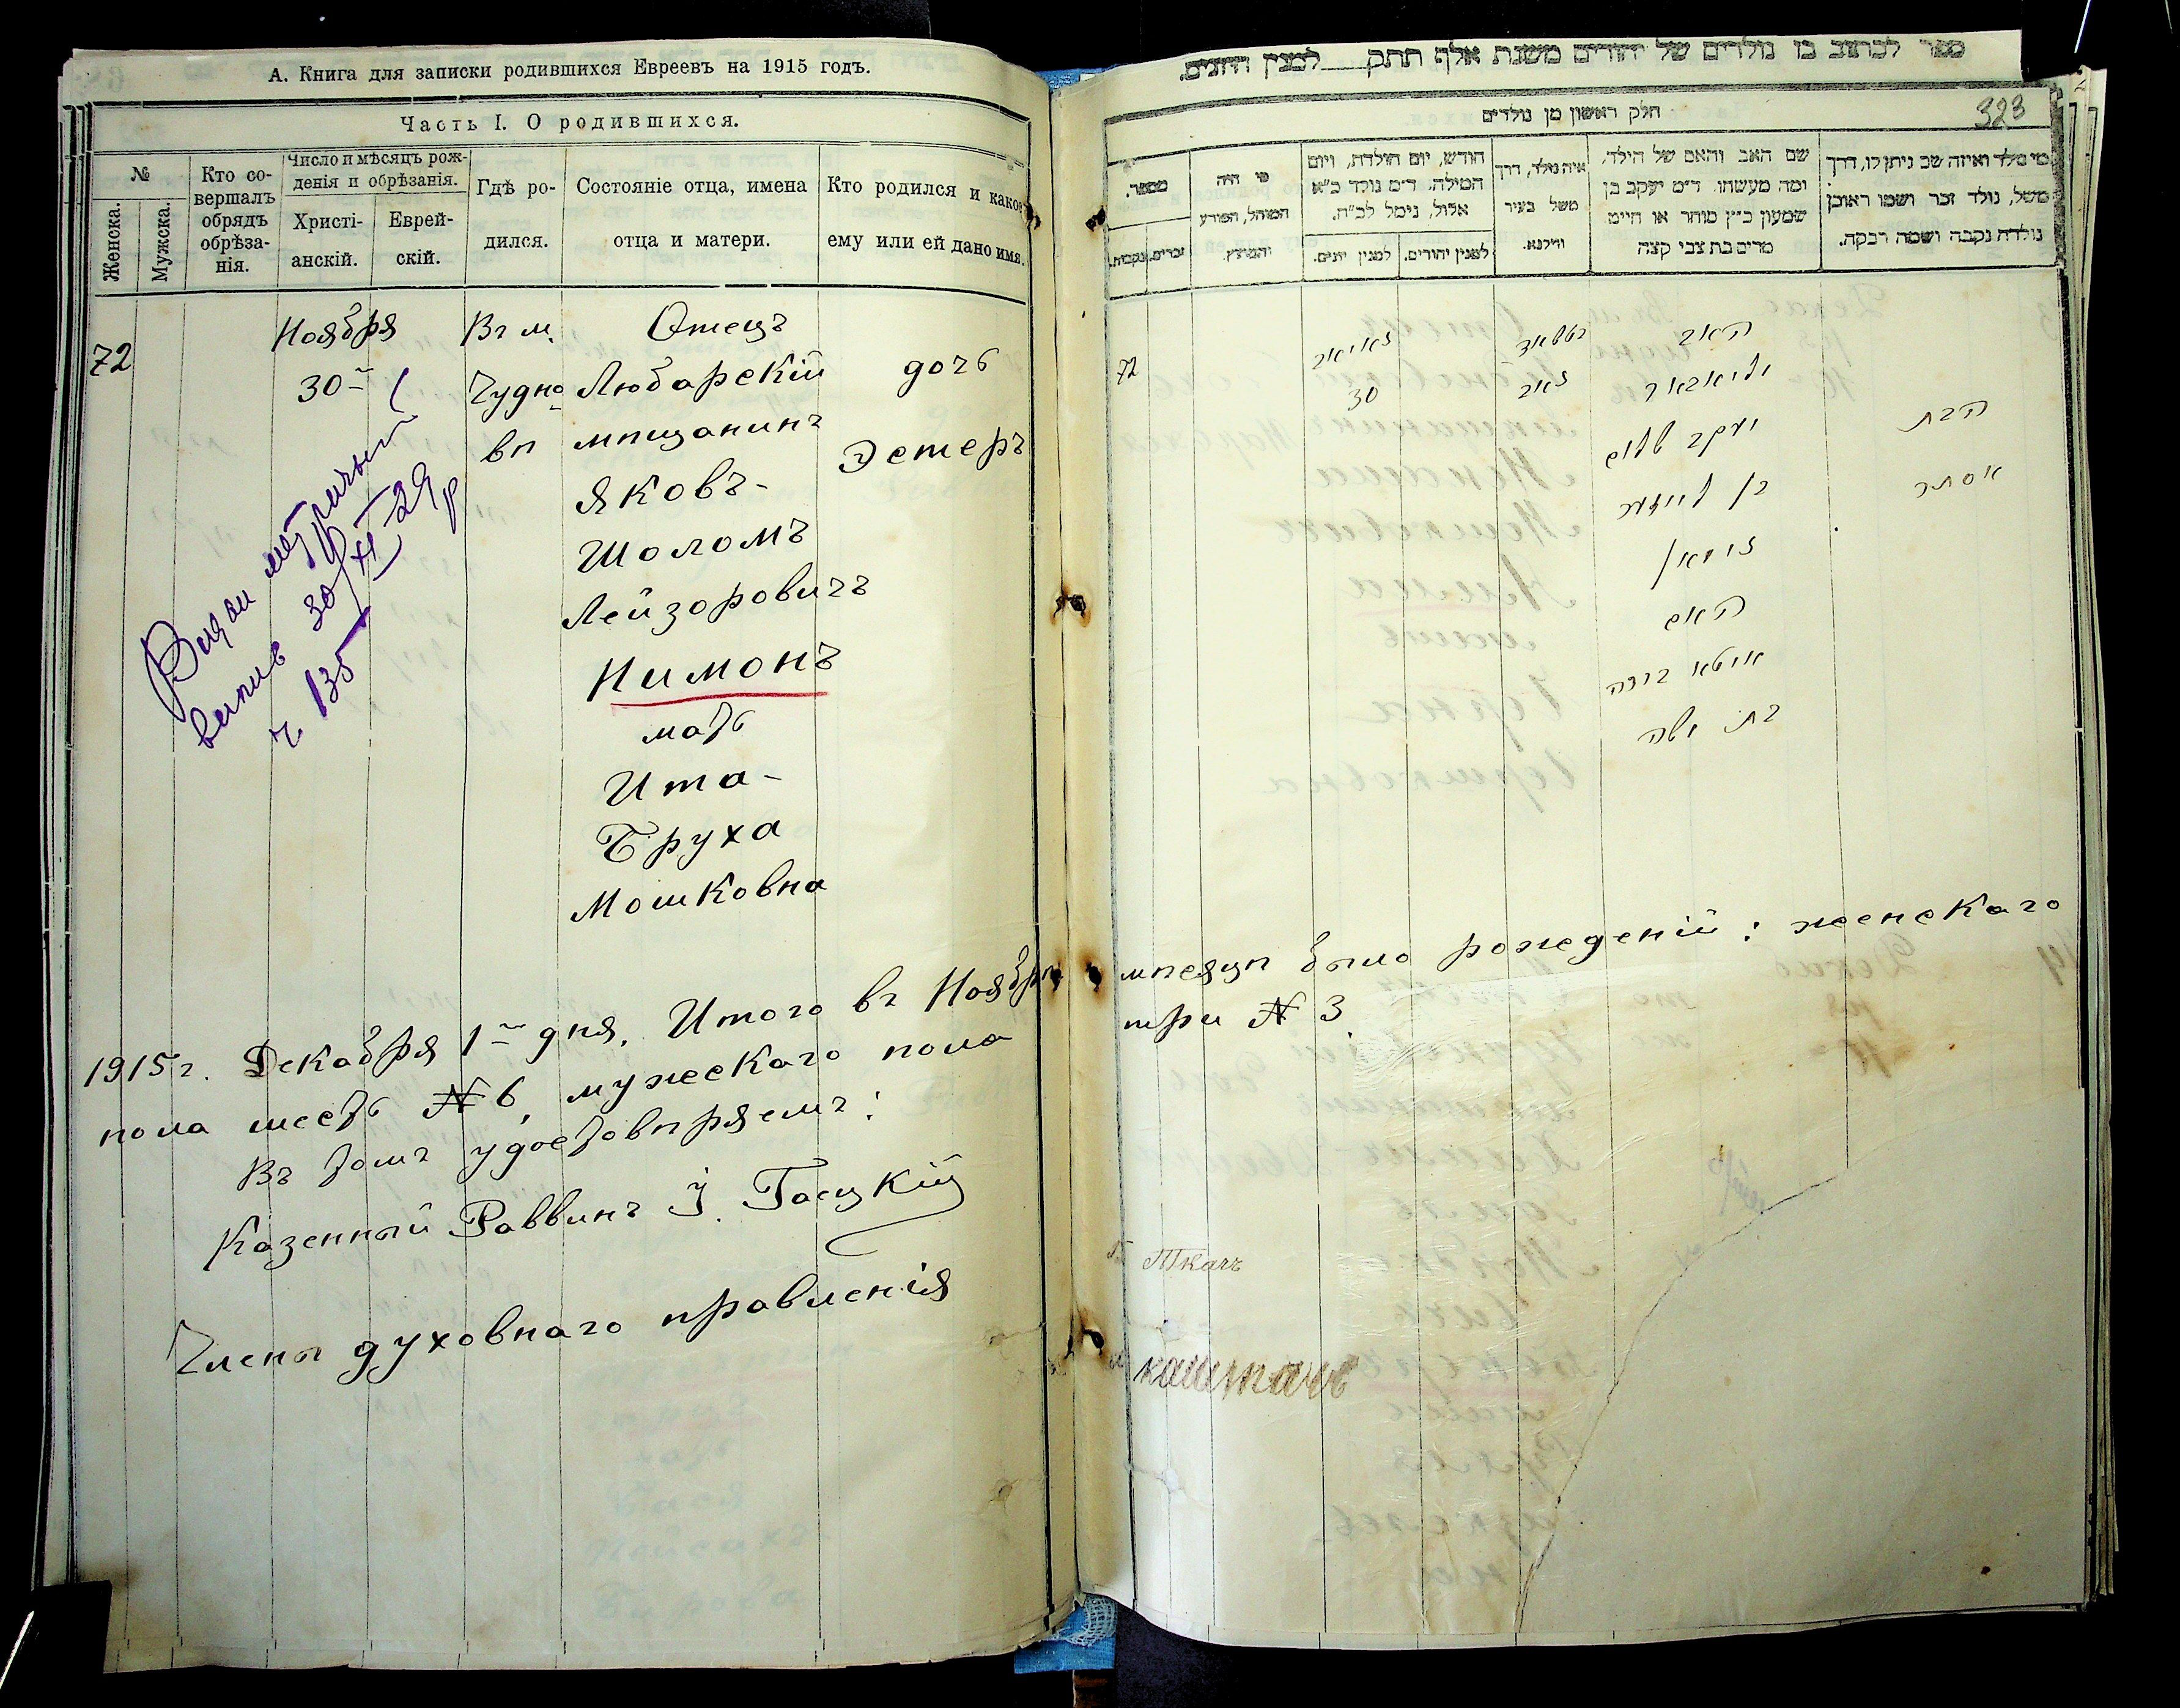 А. Книга для записки родившихся Евреевъ на 1915 годъ.
Часть I. О родившихся.
№
Женска.
Мужска.
Кто совершалъ обрядъ обрѣзанія.
Число и мѣсяцъ рожденія и обрѣзанія.
Христіанскій.
Еврейскій.
Гдѣ родился.
Состояніе отца, имена отца и матери.
Кто родился и какое ему или ей дано имя.
72
Ноября
30
Въ м.
Чудно
вѣ
Отецъ
Любарскій
мѣщанинъ
Яковъ-
Шоломъ
Лейзоровичъ
Нимонъ
мать
Ита-
Бруха
Мошковна
дочь
Эстеръ
Видан метричний
випис 30/XI-29 р
ч 135
1915 г. Декабря 1го дня. Итого въ Ноябрѣ
пола шесть № 6, мужескаго пола
Въ томъ удостовѣряемъ:
Казенный Раввинъ
Члены духовнаго правленія
ספר לכתוב בו נולדים של יהודים משנת אלף תתק לסמנין הזונים.
חלק ראשון מן נולדים
323
מספר.
נקבות.
זכרים.
מי היה המוהל, הפורע והמוצץ.
חודש, יום הולדת, ויום המילה. ד״מ נולד כ״א אלול, נימל לכ״ח.
למנין יונים.
למנין יהודים.
איה נולד, דרך משל בעיר ווילנא.
שם האב והאם של הילד, ומה מעשהו. ד״מ יעקב בן שמעון כ״ץ סוחר או חייט מרים בת צבי קצה
מי נולד ואיזה שם ניתן לו, דרך משל, נולד זכר ושמו ראובן נולדה נקבה ושמה רבקה.
72
30
האב
יעקב שלום
האם
בת משה
הבת
אסתר
мѣсяцѣ было рожденій: женскаго
три № 3
Ткачъ
каштанъ